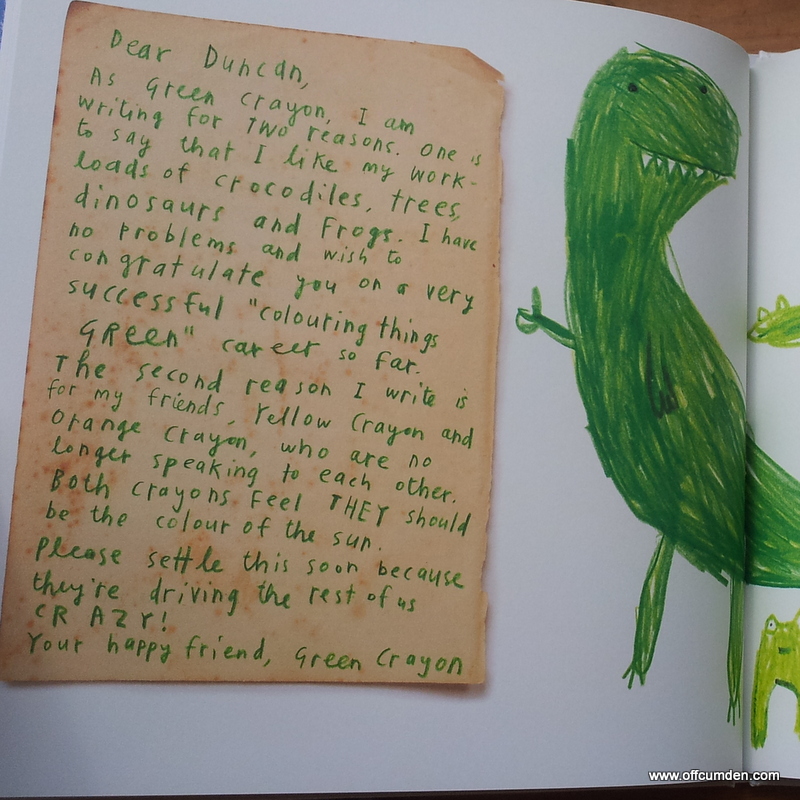 Dear Duncan,
As Green Crayon, I am
writing for TWO reasons. One is
to say that I like my work-
loads of crocodiles, trees,
dinosaurs and frogs. I have
no problems and wish to
congratulate you on a very
successful "colouring things
GReen" career so far.
The second reason I write is
for my friends, Yellow Crayon and
Orange Crayon, who are no
longer speaking to each other.
Both crayons feel THEY should
be the colour of the sun.
Please settle this soon because
they're driving the rest of us
CRAZY!
Your happy friend, Green Crayon
www.offcumden.com